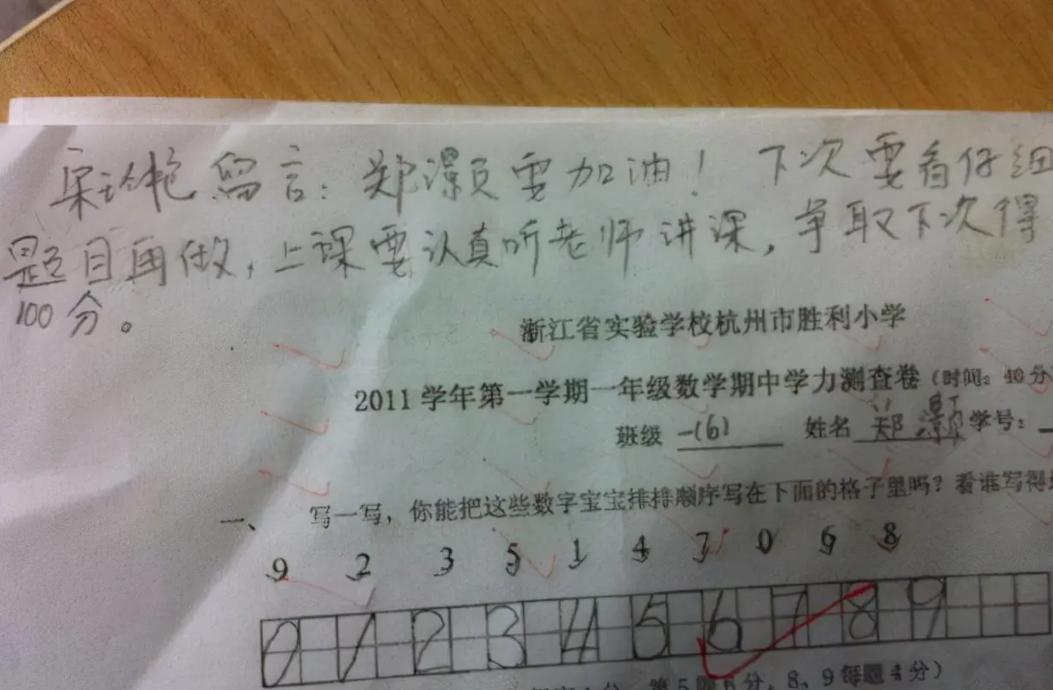 留言：郑灏员要加油！下次要看仔细
题目再做，上课要认真听老师讲课，争取下次得
100分。
浙江省实验学校杭州市胜利小学
2011学年第一学期一年级数学期中学力测查卷（时间：40分
班级 一(6) 姓名 郑灏 学号：
一、 写一写，你能把这些数字宝宝排排顺序写在下面的格子里吗？看谁写得
9 2 3 5 1 4 7 0 6 8
0 1 2 3 4 5 6 7 8 9
分，第5题6分，8、9每题4分）